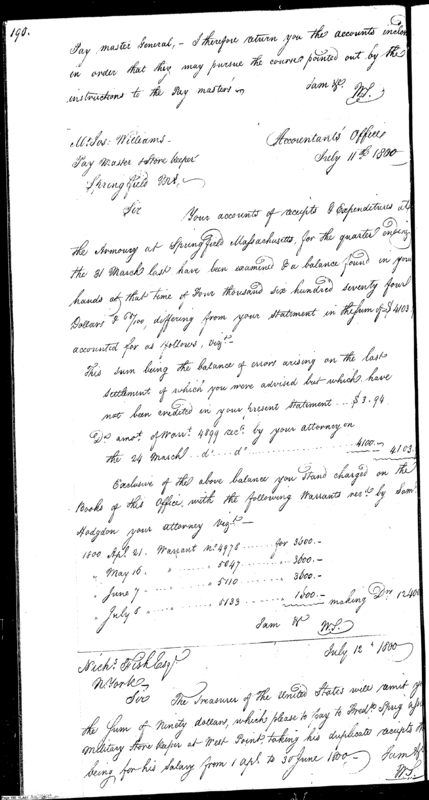 190.
Pay master General, - I therefore return you the accounts inclos
in order that they may pursue the course pointed out by the
instructions to the Pay masters
I am &c.
W.S.
Mr. Jos: Williams
Pay Master & Store keeper
Springfield
Accountants Office
July 11th 1800
Sir
Your accounts of receipts & Expenditures at
the Armoury at Springfield Massachusetts, for the quarter ending
the 31 March last have been examined & a balance found in your
hands at that time of Four thousand six hundred seventy four
Dollars & /100, differing from your statement in the sum of $4103
accounted for as follows, vizt.
This sum being the balance of errors arising on the last
settlement of which you were advised but which have
not been credited in your present statement ... $3.94
Do. amot. of Warrt. 4899 recd. by your attorney on
the 24 March .. do .. do ... 4100.-
4103.
Exclusive of the above balance you stand charged on the
Books of this Office, with the following Warrants recd. by Saml.
Hodgdon your attorney vizt.-
1800 Apl. 21. Warrant No. 4978 ... for 3600.-
" May 16. " " 5047 ... 3600.-
" June 7 - " " 5110 ... 3600.-
" July 5 " " 5133 ... 1600.- making Drs. 12400
I am &c
W.S.
July 12th 1800
Nichs. Fish Esqr.
N York
Sir
The Treasurer of the United States will remit you
the Sum of Ninety dollars, which please to pay to Fredk. Sprug
military Store keeper at West Point, taking his duplicate receipts
being for his Salary from 1 apl. to 30 June 1800 - I am &c
W.S.